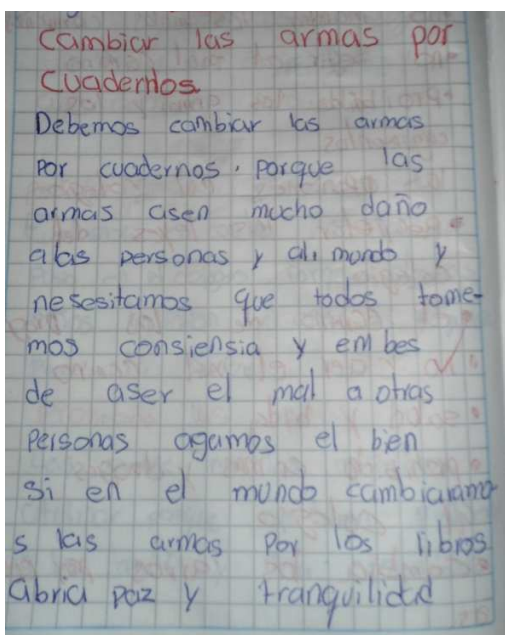 Cambiar las armas por
Cuadernos.
Debemos cambiar las armas
por cuadernos. porque las
armas asen mucho daño
alas personas y al mundo y
nesesitamos que todos tome-
mos consiensia y em bes
de aser el mal a otras
personas agamos el bien
si en el mundo cambiaramo
s las armas por los libros
abria paz y tranquilidad